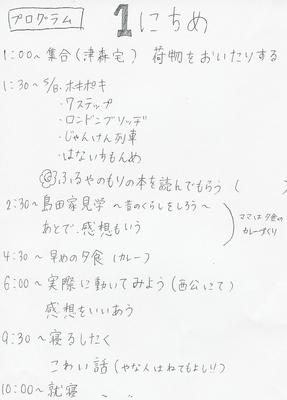 プログラム
1にちめ
1:00〜集合(津森宅) 荷物をおいたりする
1:30〜
・7ステップ
・ロンドンブリッヂ
・じゃんけん列車
・はないちもんめ
ふるやのもりの本を読んでもらう ( )
2:30〜島田家見学 〜昔のくらしをしろう〜
あとで感想もいう
ママは夕食の
カレーづくり
4:30〜早めの夕食(カレー)
6:00〜実際に動いてみよう(西公にて)
感想をいいあう
9:30〜寝るしたく
こわい話(やな人はねてもよし!!)
10:00〜就寝